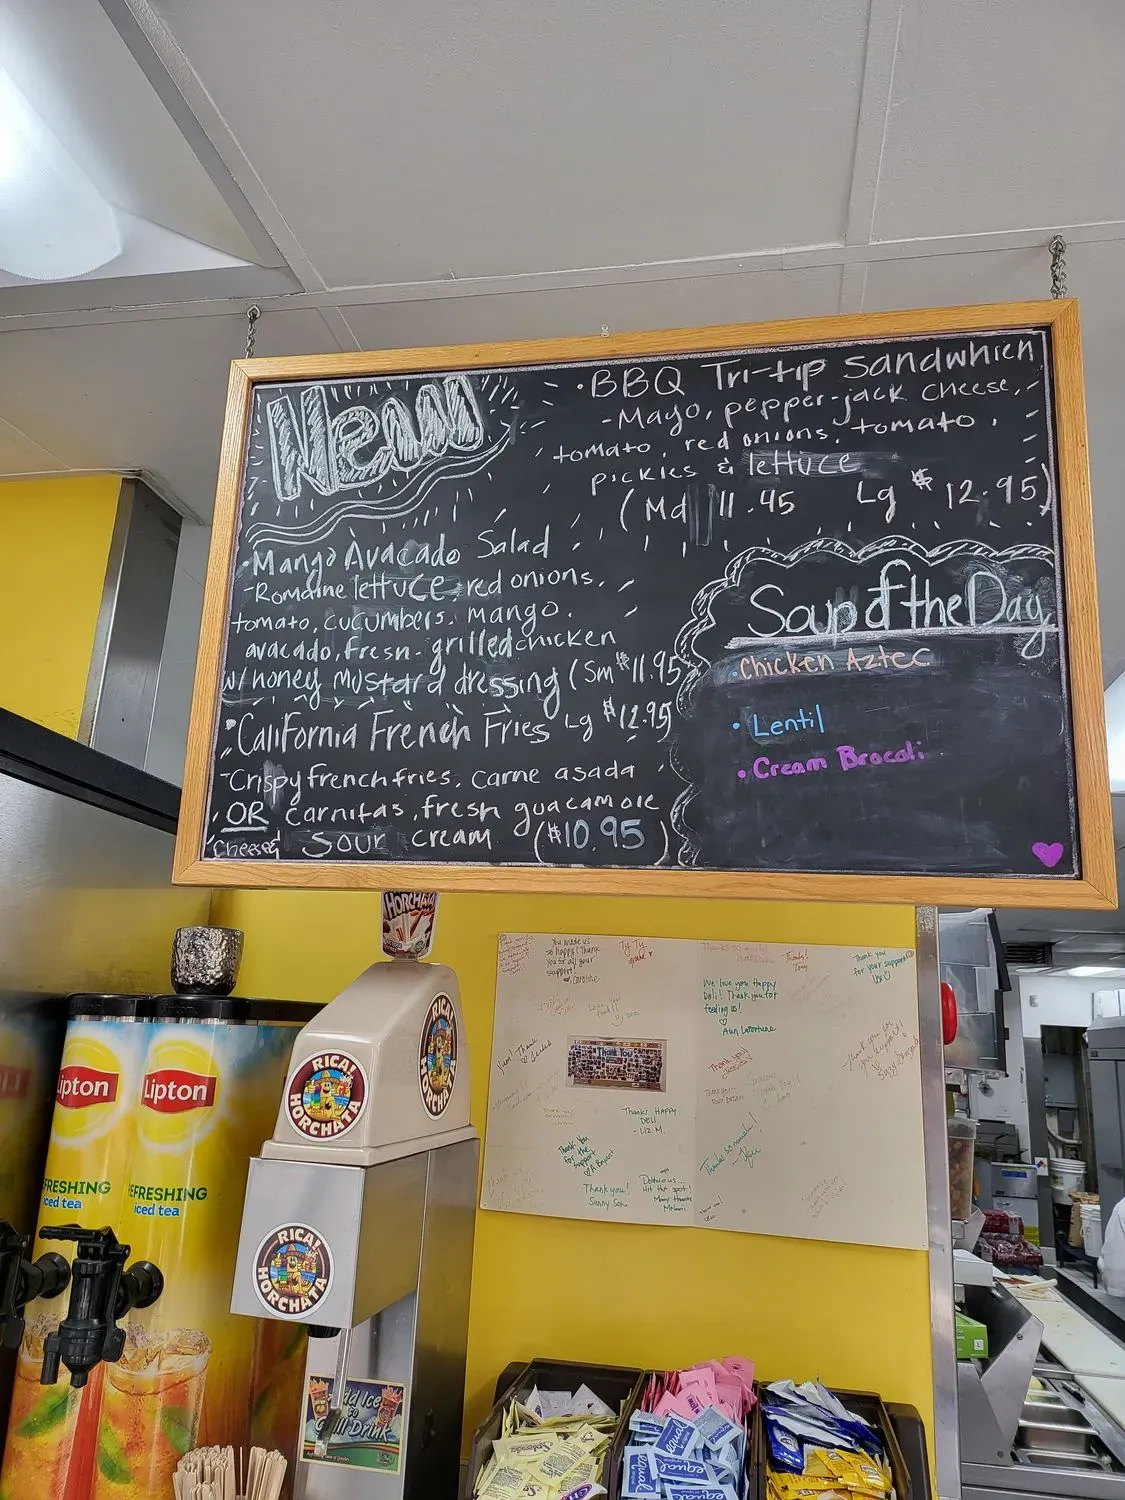 New
• BBQ Tri-tip Sandwhich
- Mayo, pepper-jack cheese,
tomato, red onions, tomato,
pickles & lettuce
(Md 11.45 Lg $12.95)
• Mango Avacado Salad
- Romaine lettuce, red onions,
tomato, cucumbers, mango,
avocado, fresh-grilled chicken
w/ honey mustard dressing (Sm $11.95
Lg $12.95)
• California French Fries
- Crispy french fries, carne asada
OR carnitas, fresh guacamole
cheese & sour cream ($10.95)
Soup of the Day
• Chicken Aztec
• Lentil
• Cream Brocoli
HORCHATA
RICAL HORCHATA
RICAL HORCHATA
RICAL HORCHATA
Lipton
Lipton
FRESHING
iced tea
EFRESHING
iced tea
Add Ice
to
Chill Drink
You made us
so happy! Thank
you for all your
support!
Caroline
Thank you
for your support
We love you Happy
Deli! Thank you for
feeding us!
Thank You
Thanks HAPPY
DELI
- Liz M.
Thank you
for the
support
Thank you!
Sunny Son
Delicious...
Hit the spot!
Many thanks
Melani
Thanks so much!
Splenda
equal
equal
equal